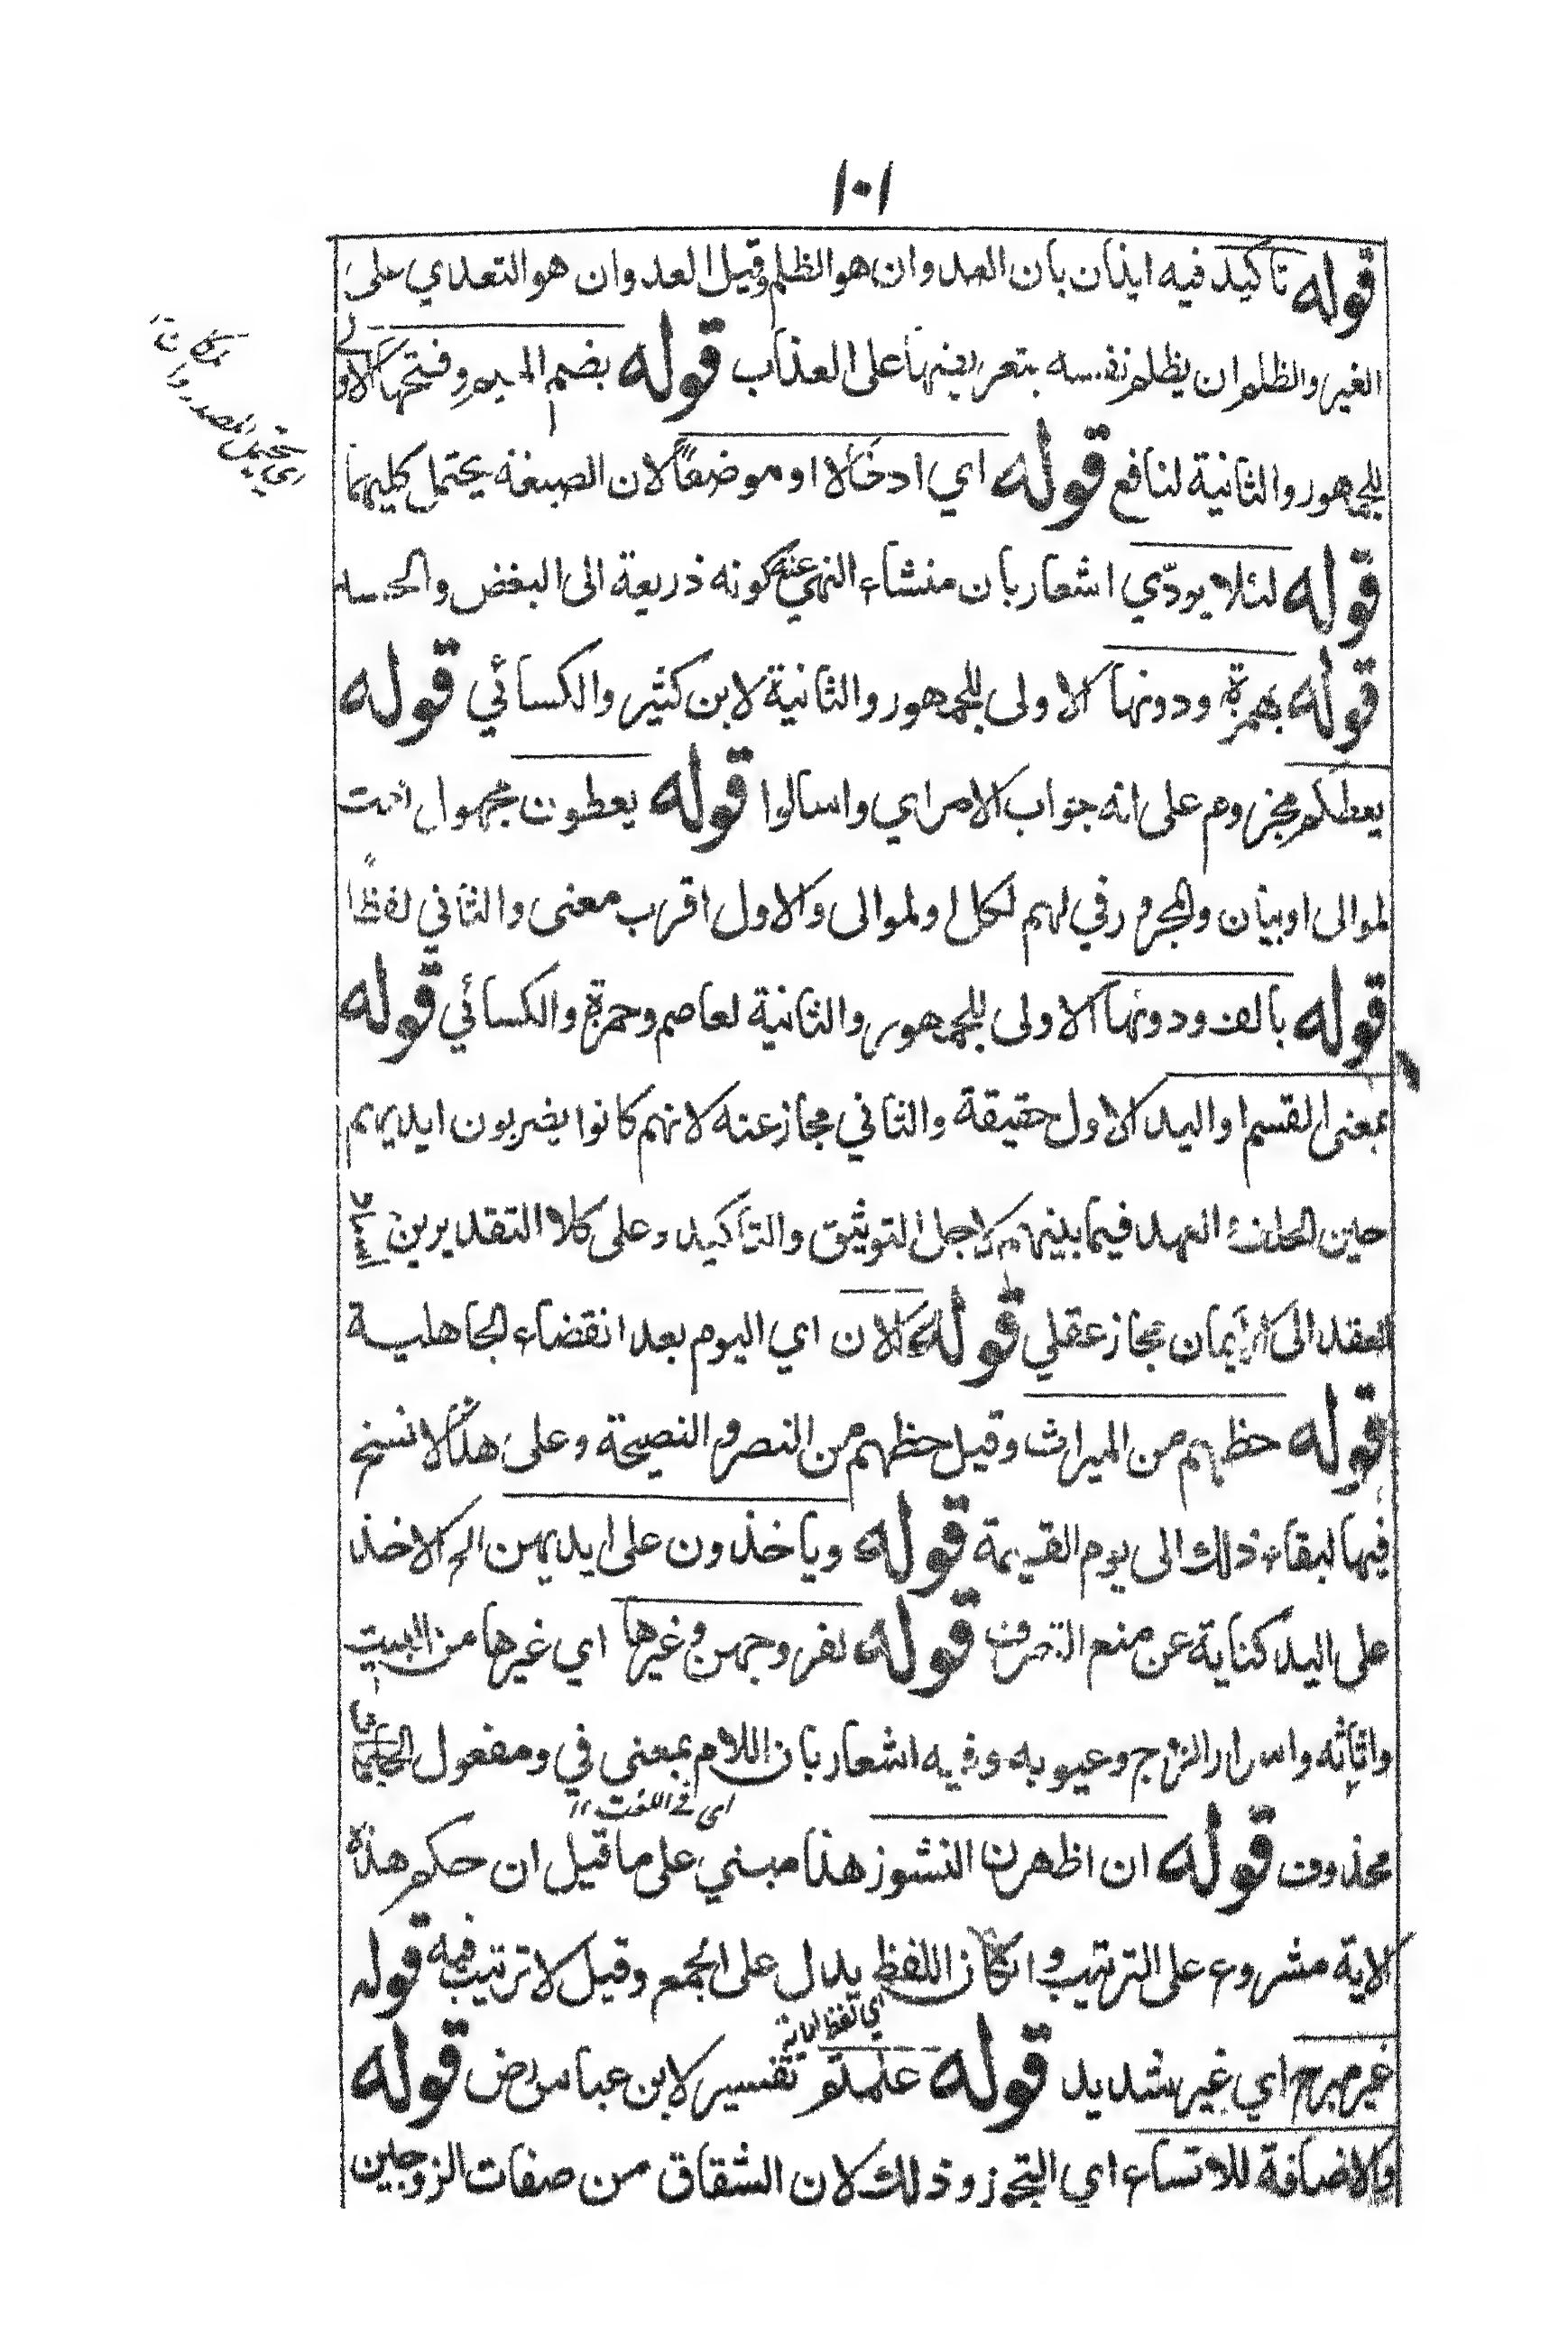 ١٠١
قوله تاكيد فيه ايذان بان العدوان هو الظلم وقيل العدوان هو التعدي على
الغير والظلم ان يظلم نفسه بتعريضها على العذاب قوله بضم الميم وفتحها الاولى
للجمهور والثانية لنافع قوله اي ادخالا او موضعا لان الصيغة يحتمل كليهما
اي يحتمل المصدر والمكان
قوله لئلا يودّي اشعار بان منشاء النهي عنه كونه ذريعة الى البغض والحسد
قوله بهمزة ودونها الاولى للجمهور والثانية لابن كثير والكسائي قوله
يعطكم مجزوم على انه جواب الامر اي واسالوا قوله يعطون مجهول
لموالى او بيان والمجرور في لهم لكل او لموالى والاول اقرب معنى والثاني لفظًا
قوله بالف ودونها الاولى للجمهور والثانية لعاصم وحمزة والكسائي قوله
بمعنى القسم او اليد الاول حقيقة والثاني مجاز عنه لانهم كانوا يضربون ايديهم
حين الحلف العهد فيما بينهم لاجل التوثيق والتأكيد وعلى كلا التقديرين
العقد الى الأيمان مجاز عقلي قوله الان اي اليوم بعد انقضاء الجاهلية
قوله حظهم من الميراث وقيل حظهم من النصر والنصيحة وعلى هذا لا نسخ
فيها لبقاء ذلك الى يوم القيمة قوله وياخذون على ايديهن الخ الاخذ
على اليد كناية عن منع التصرف قوله لفروجهن وغيرها اي غيرها من البيت
واثاثه واسرار الزوج وعيوبه وفيه اشعار بان اللام بمعنى في ومفعول
اي في اللغت ١١
محذوف قوله ان اظهرن النشوز هذا مبني على ما قيل ان حكم هذه
الاية مشروع على الترتيب وان كان اللفظ يدل على الجمع وقيل لا ترتيب فيه قوله
اي لفظ الاية
غير مبرح اي غير شديد قوله علمتم تفسير لابن عباس رض قوله
والاضافة للاتساع اي التجوز وذلك لان الشقاق من صفات الزوجين